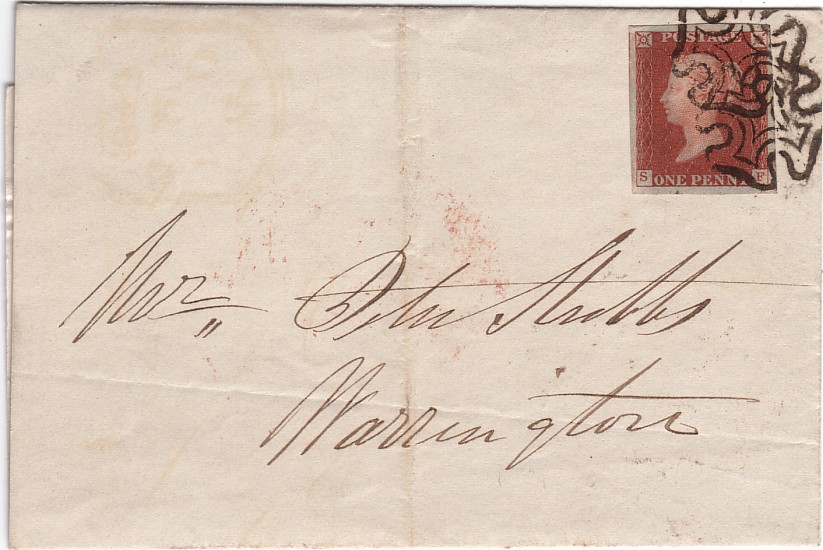 POSTAGE
S F
ONE PENNY
Mr Peter Stubbs
Warrington